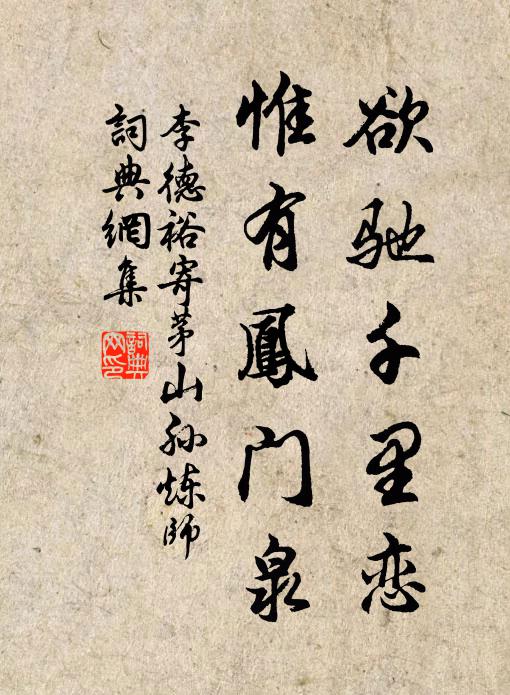 欲驰千里恋
惟有鳳门泉
李德裕寄茅山孙炼师
詞典網集
詞典
网印